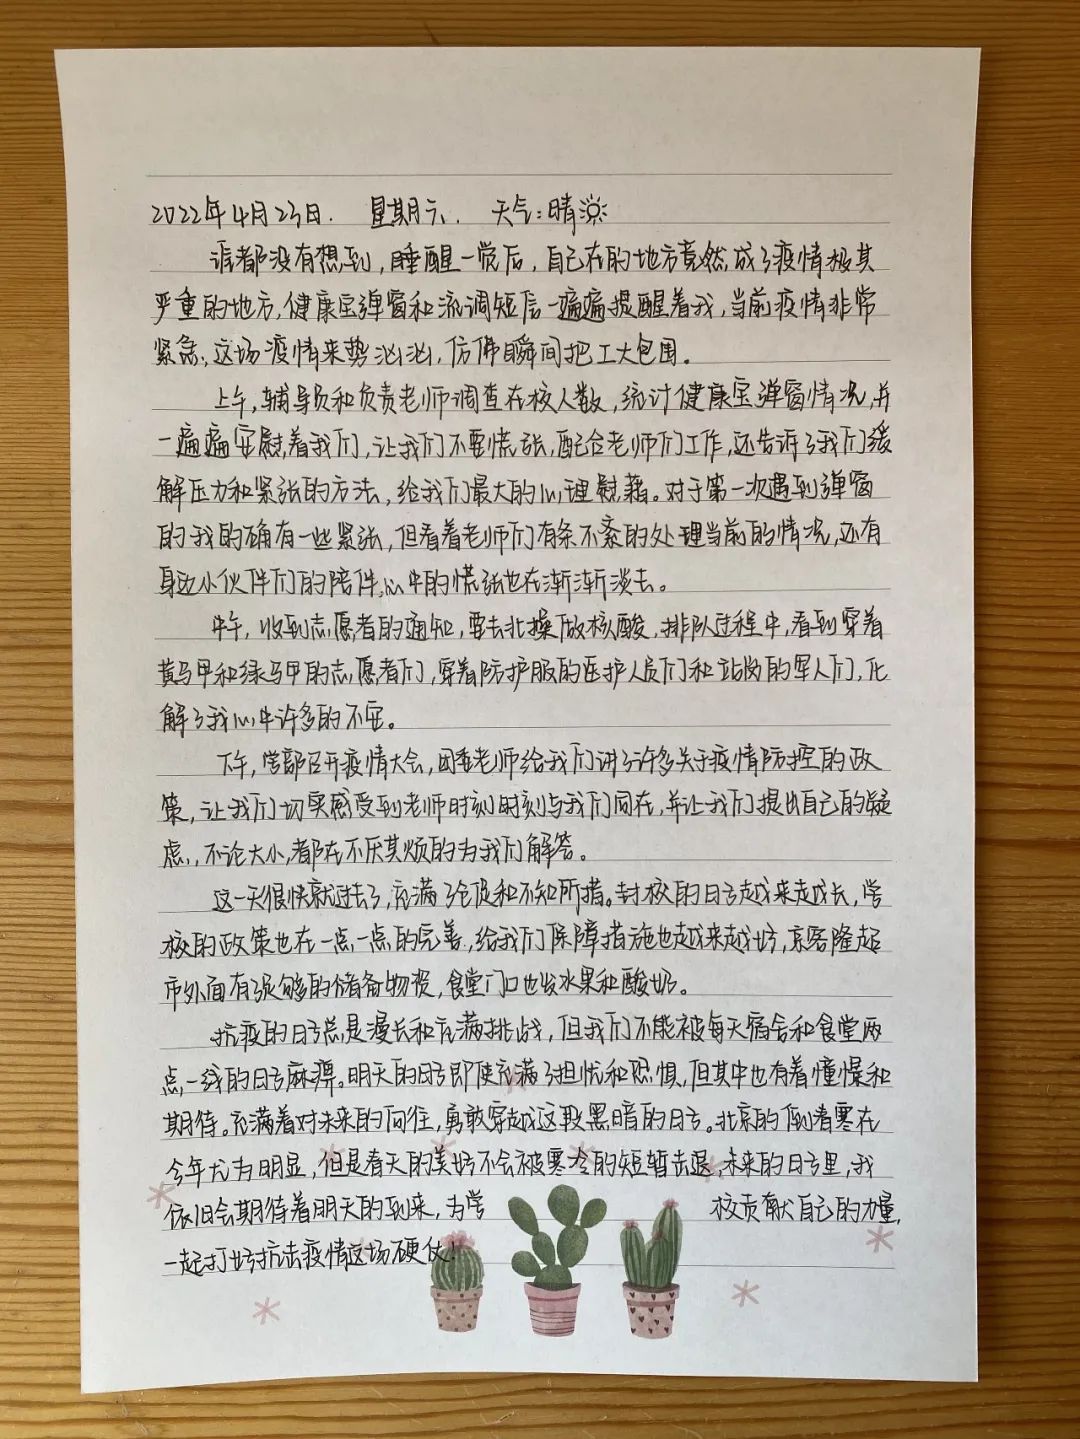 2022年4月23日. 星期六. 天气:晴
谁都没有想到,睡醒一觉后,自己在的地方竟然成了疫情极其
严重的地方,健康宝弹窗和流调短信一遍遍提醒着我,当前疫情非常
紧急,这场疫情来势汹汹,仿佛瞬间把工大包围。
上午,辅导员和负责老师调查在校人数,统计健康宝弹窗情况,并
一遍遍安慰着我们,让我们不要慌张,配合老师们工作,还告诉了我们缓
解压力和紧张的方法,给我们最大的心理慰藉。对于第一次遇到弹窗
的我的确有一些紧张,但看着老师们有条不紊的处理当前的情况,还有
身边小伙伴们的陪伴,心中的慌张也在渐渐淡去。
中午,收到志愿者的通知,要去北操做核酸,排队过程中,看到穿着
黄马甲和绿马甲的志愿者们,穿着防护服的医护人员们和站岗的军人们,化
解了我心中许多的不安。
下午,学部召开疫情大会,团委老师给我们讲了许多关于疫情防控的政
策,让我们切实感受到老师时刻时刻与我们同在,并让我们提出自己的疑
虑,不论大小,都在不厌其烦的为我们解答。
这一天很快就过去了,充满了仓促和不知所措。封校的日子越来越长,学
校的政策也在一点一点的完善,给我们保障措施也越来越好,京客隆超
市外面有足够的储备物资,食堂门口也发水果和酸奶。
抗疫的日子总是漫长和充满挑战,但我们不能被每天宿舍和食堂两
点一线的日子麻痹。明天的日子即使充满了担忧和恐惧,但其中也有着憧憬和
期待。充满着对未来的向往,勇敢穿越过这段黑暗的日子。北京的倒春寒在
今年尤为明显,但是春天的美好不会被寒冷的短暂击退,未来的日子里,我
依旧会期待着明天的到来,为学校贡献自己的力量,
一起打好抗击疫情这场硬仗!